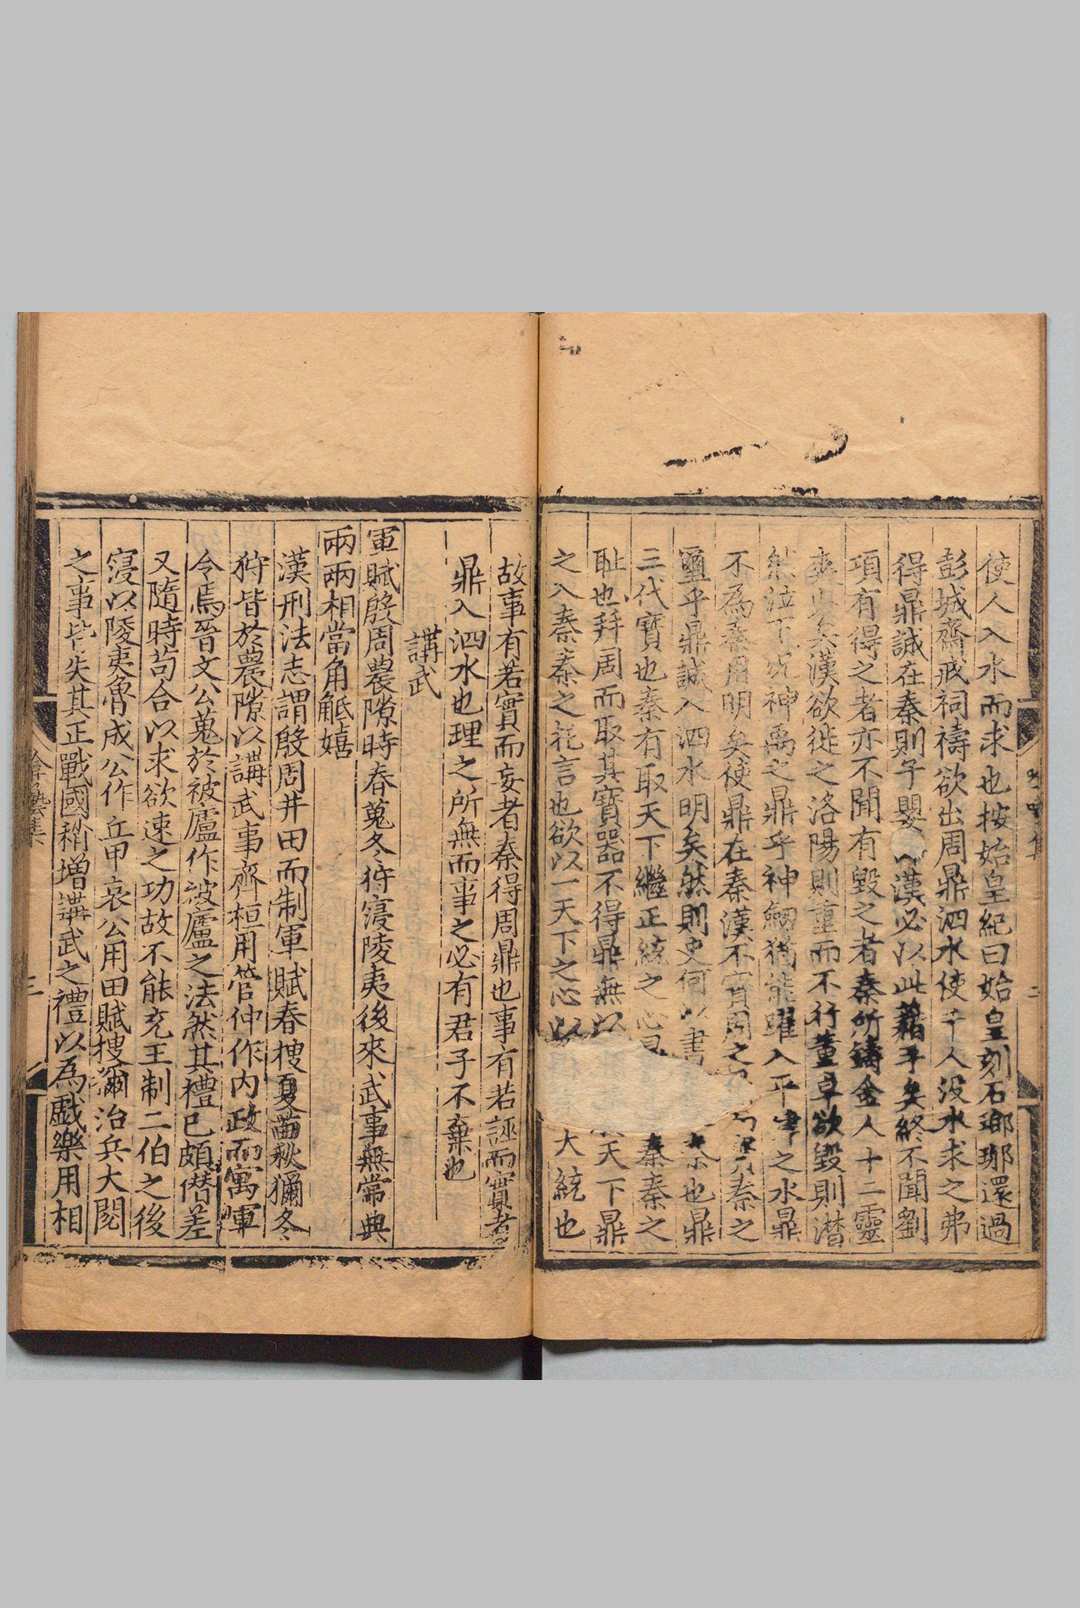 使人入水而求也按始皇紀曰始皇刻石瑯琊還過
彭城齋戒祠禱欲出周鼎泗水使千人沒水求之弗
得鼎誠在秦則子嬰入漢必以此藉手矣終不聞劉
項有得之者亦不聞有毀之者秦所鑄金人十二靈
漢欲徙之洛陽則重而不行董卓欲毀則潛
然泣下况神禹之鼎乎神龍躍入平之水鼎
不為秦用明矣使鼎在秦漢不實周之秦之
璽乎鼎誠入泗水明矣然則史何以書也鼎
三代寶也秦有取天下繼正統之心秦秦之
恥也拜周而取其寶器不得鼎無以天下鼎
之入秦秦之托言也欲以一天下之心以大統也
故事有若實而妄者秦得周鼎也事有若誣而實者
鼎入泗水也理之所無而事之必有君子不棄也
講武
軍賦殷周農隙時春蒐冬狩寖陵夷後來武事無常典
兩兩相當角觝嬉
漢刑法志謂殷周井田而制軍賦春搜夏苗秋獮冬
狩皆於農隙以講武事齊桓用管仲作內政而寓軍
令焉晉文公蒐於被廬作被廬之法然其禮已頗僭差
又隨時苟合以求欲速之功故不能充王制二伯之後
寖以陵夷魯成公作丘甲哀公用田賦搜獮治兵大閱
之事皆失其正戰國稍增講武之禮以為戲樂用相